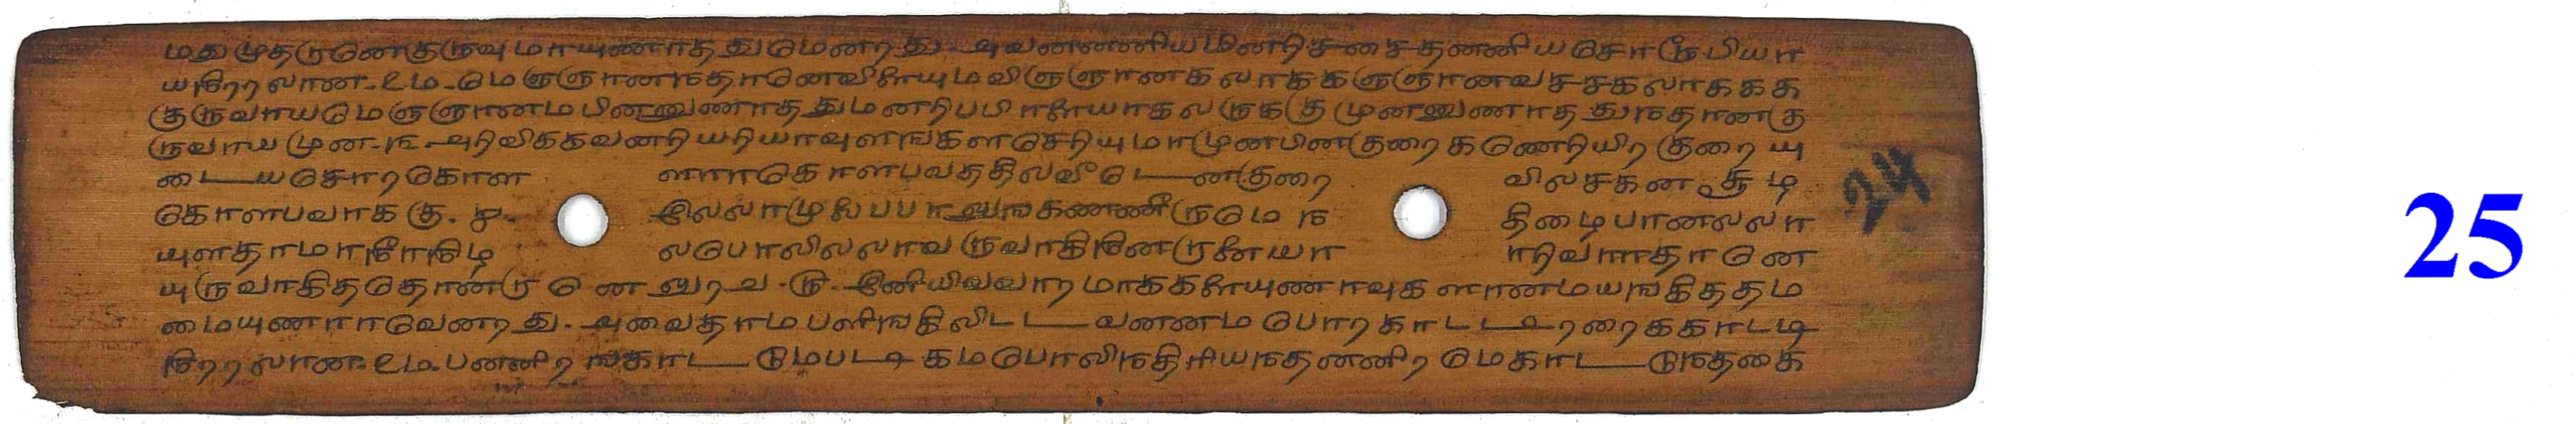 மது முதறகுணெகுருவு மாயுணாத துமெனறது. அவனனனிய மினறிசசைதனனிய சொரூபியா
யநிறறலான. உம. மெஞஞானநதானெவிளையுமவிஞஞானகலாககஞஞானவசசகலாககக
குருவாயமெஞஞானமபினனுணாததுமனறிபபிரளையாகலருககு முனனுணாததுநதானகு
ருவாய முன. ௩. அறிவிககவனறியறியாவுளஙகளசெறியுமாமுனபினகுறைகணெறியிறகுறையு
டையசொறகொள ளாரகொளபவததிலவீடெனகுறை விலசகன சூழ
கொளபவாககு. ௪. இலலாமுலைபபாலுஙகணணீருமெந திழைபானலலா
யுளதாமாநீாநிழ லபொலிலலாவருவாகிநினெருனையா ரறிவாரதானெ
யுருவாகிததொனருனெலுறவ. ௫. இனியிவவானமாககளையுணாவுகளானமயஙகிததம
மையுணராரவெனறது. அவைதாமபளிஙகிலிடடவனனமபொறகாடடறறைககாடடி
நிறறலான. உம. பனனிறஙகாடடுமபடிகமபொலிநதிரியநதனனிறமெகாடடுநதகை